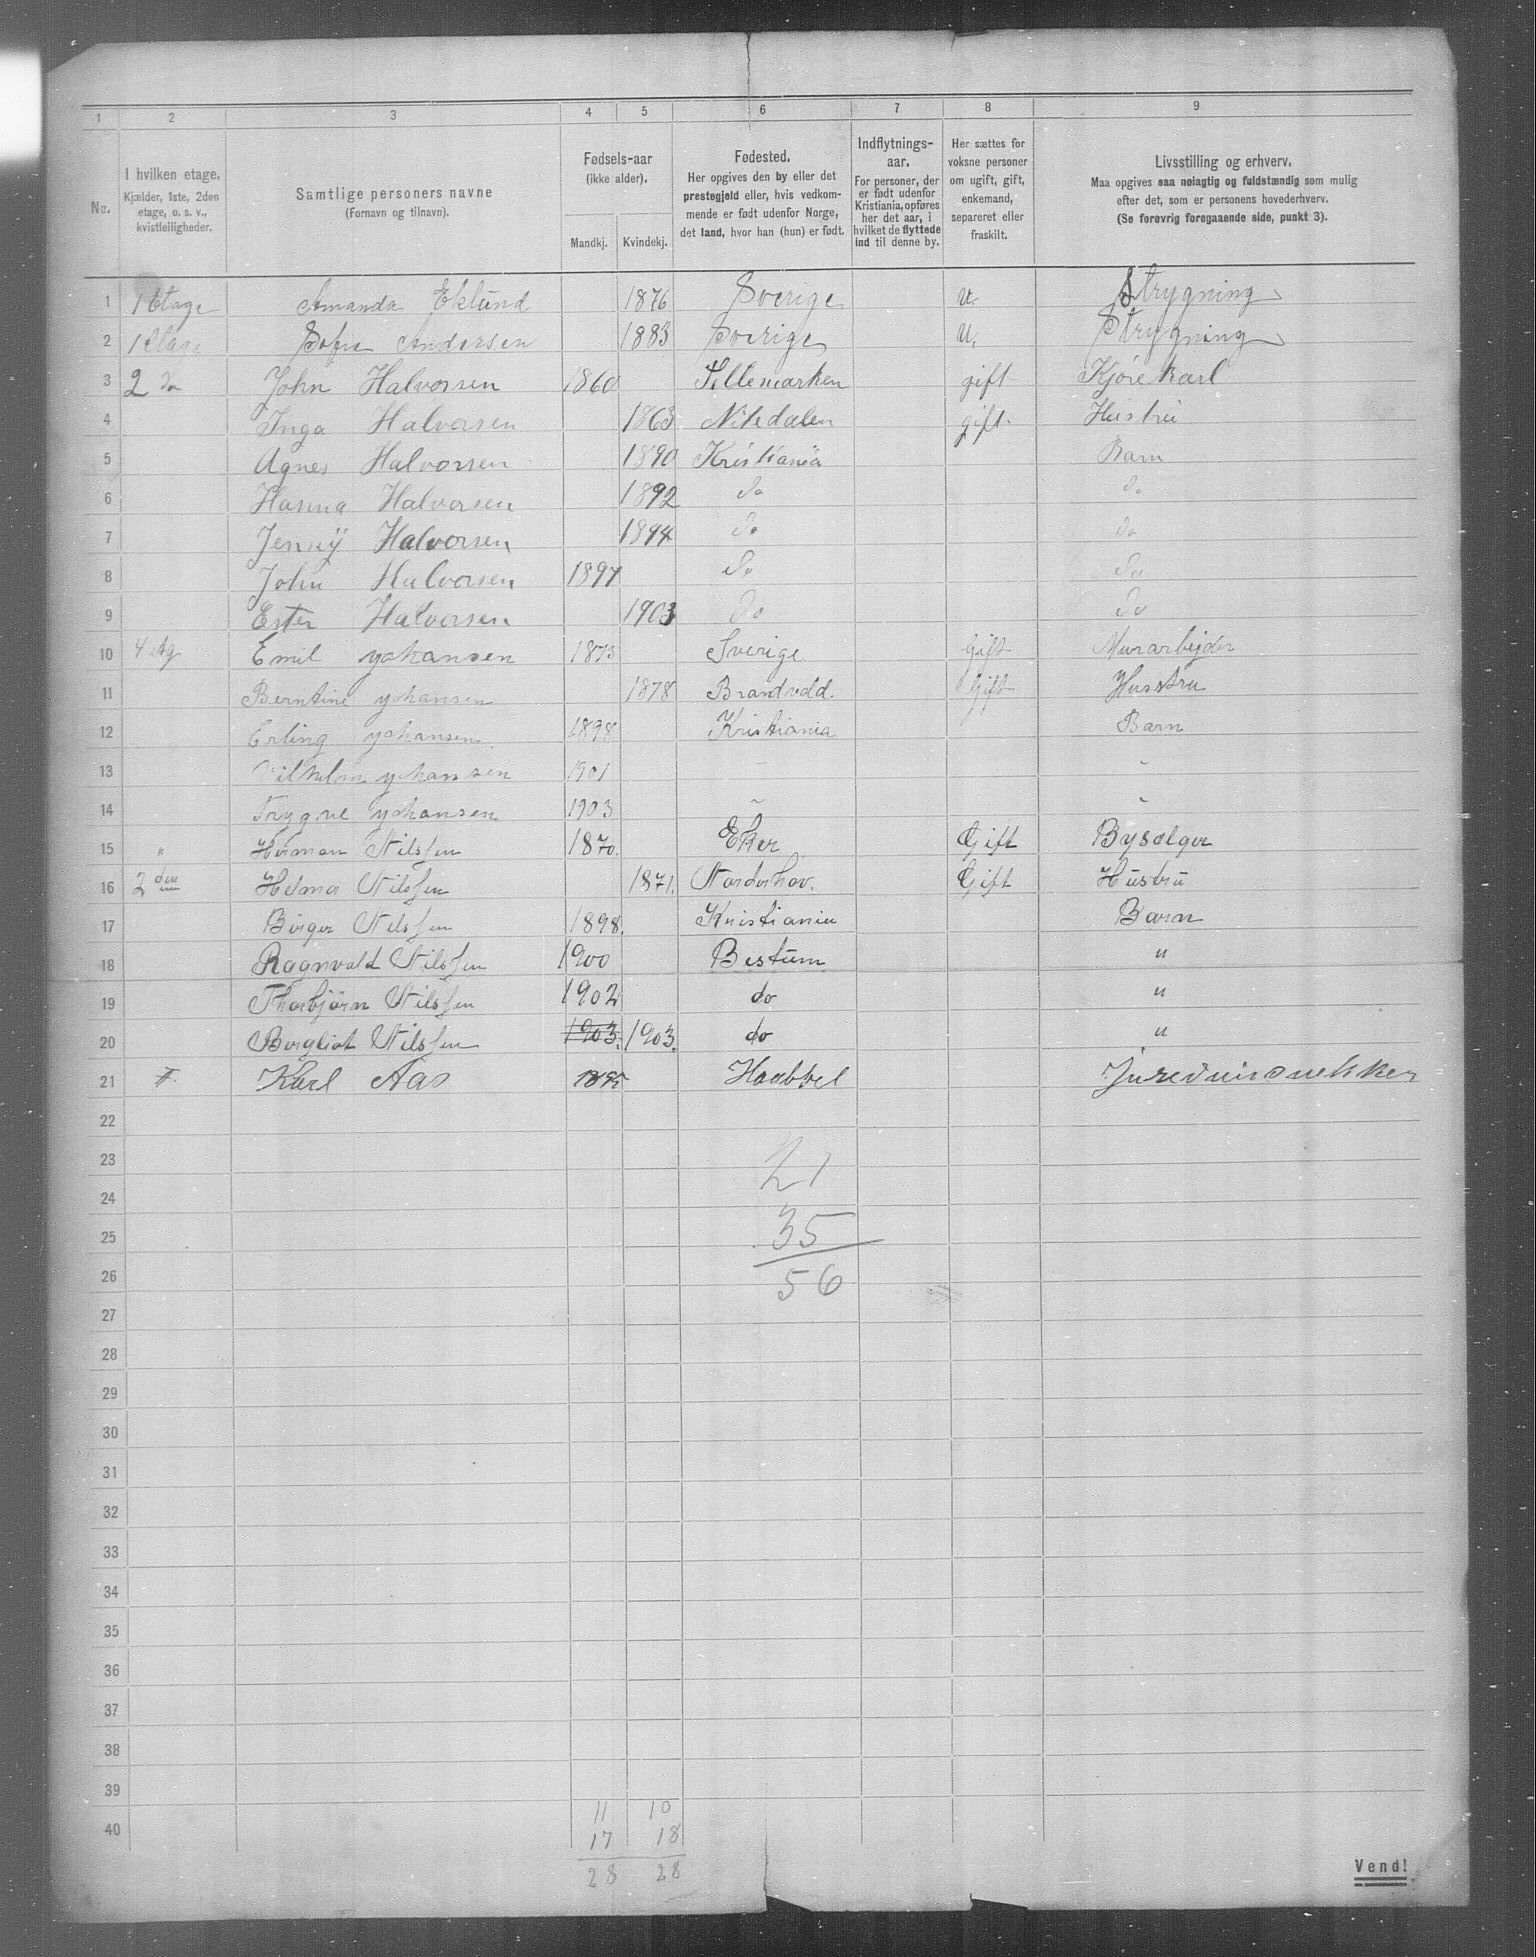 1 2 3 4 5 6 7 8 9
No.
I hvilken etage.
Kjælder, 1ste, 2den
etage, o. s. v.,
kvistleiligheder.
Samtlige personers navne
(Fornavn og tilnavn).
Fødsels-aar
(ikke alder).
Mandkj. Kvindekj.
Fødested.
Her opgives den by eller det
prestegjeld eller, hvis vedkom-
mende er født udenfor Norge,
det land, hvor han (hun) er født.
Indflytnings-
aar.
For personer, der
er født udenfor
Kristiania, opføres
her det aar, i
hvilket de flyttede
ind til denne by.
Her sættes for
voksne personer
om ugift, gift,
enkemand,
separeret eller
fraskilt.
Livsstilling og erhverv.
Maa opgives saa nøiagtig og fuldstændig som mulig
efter det, som er personens hovederhverv.
(Se forøvrig foregaaende side, punkt 3).
1 1 Etage Amanda Eklund 1876 Sverige u. Strygning
2 1 Etage Sofie Andersen 1883 Sverige u. Strygning
3 2 do John Halvorsen 1860 Tellemarken gift Kjørekarl
4 Inga Halvorsen 1863 Nitedalen gift. Hustru
5 Agnes Halvorsen 1890 Kristiania Barn
6 Hanna Halvorsen 1892 do do
7 Jenny Halvorsen 1894 do do
8 John Halvorsen 1897 do do
9 Ester Halvorsen 1903 do do
10 4 Etg Emil Johansen 1873 Sverige Gift Murarbejder
11 Berntine Johansen 1878 Brandvold. Gift Husstru
12 Erling Johansen 1898 Kristiania Barn
13 Vilhelm Johansen 1901 " "
14 Trygve Johansen 1903 " "
15 " Herman Nilssen 1870. Eker Gift Bysælger
16 2 den Helma Nilssen 1871. Norderhov. Gift Hustru
17 Birger Nilssen 1898. Kristiania Barn
18 Ragnvald Nilssen 1900 Bestum "
19 Thorbjørn Nilssen 1902 do "
20 Borgliot Nilssen 1903. 1903. do "
21 Karl Aas Haabbel
22
23 21
24
25 35
26 56
27
28
29
30
31
32
33
34
35
36
37
38
39
11 10
40 17 18
28 28
Vend!